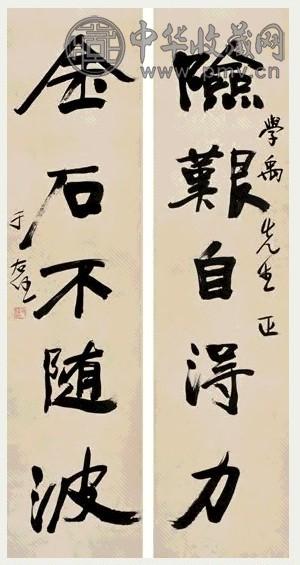 險艱自得力
學禹先生正
金石不随波
于右任
中华收藏网
www.pmv.cn